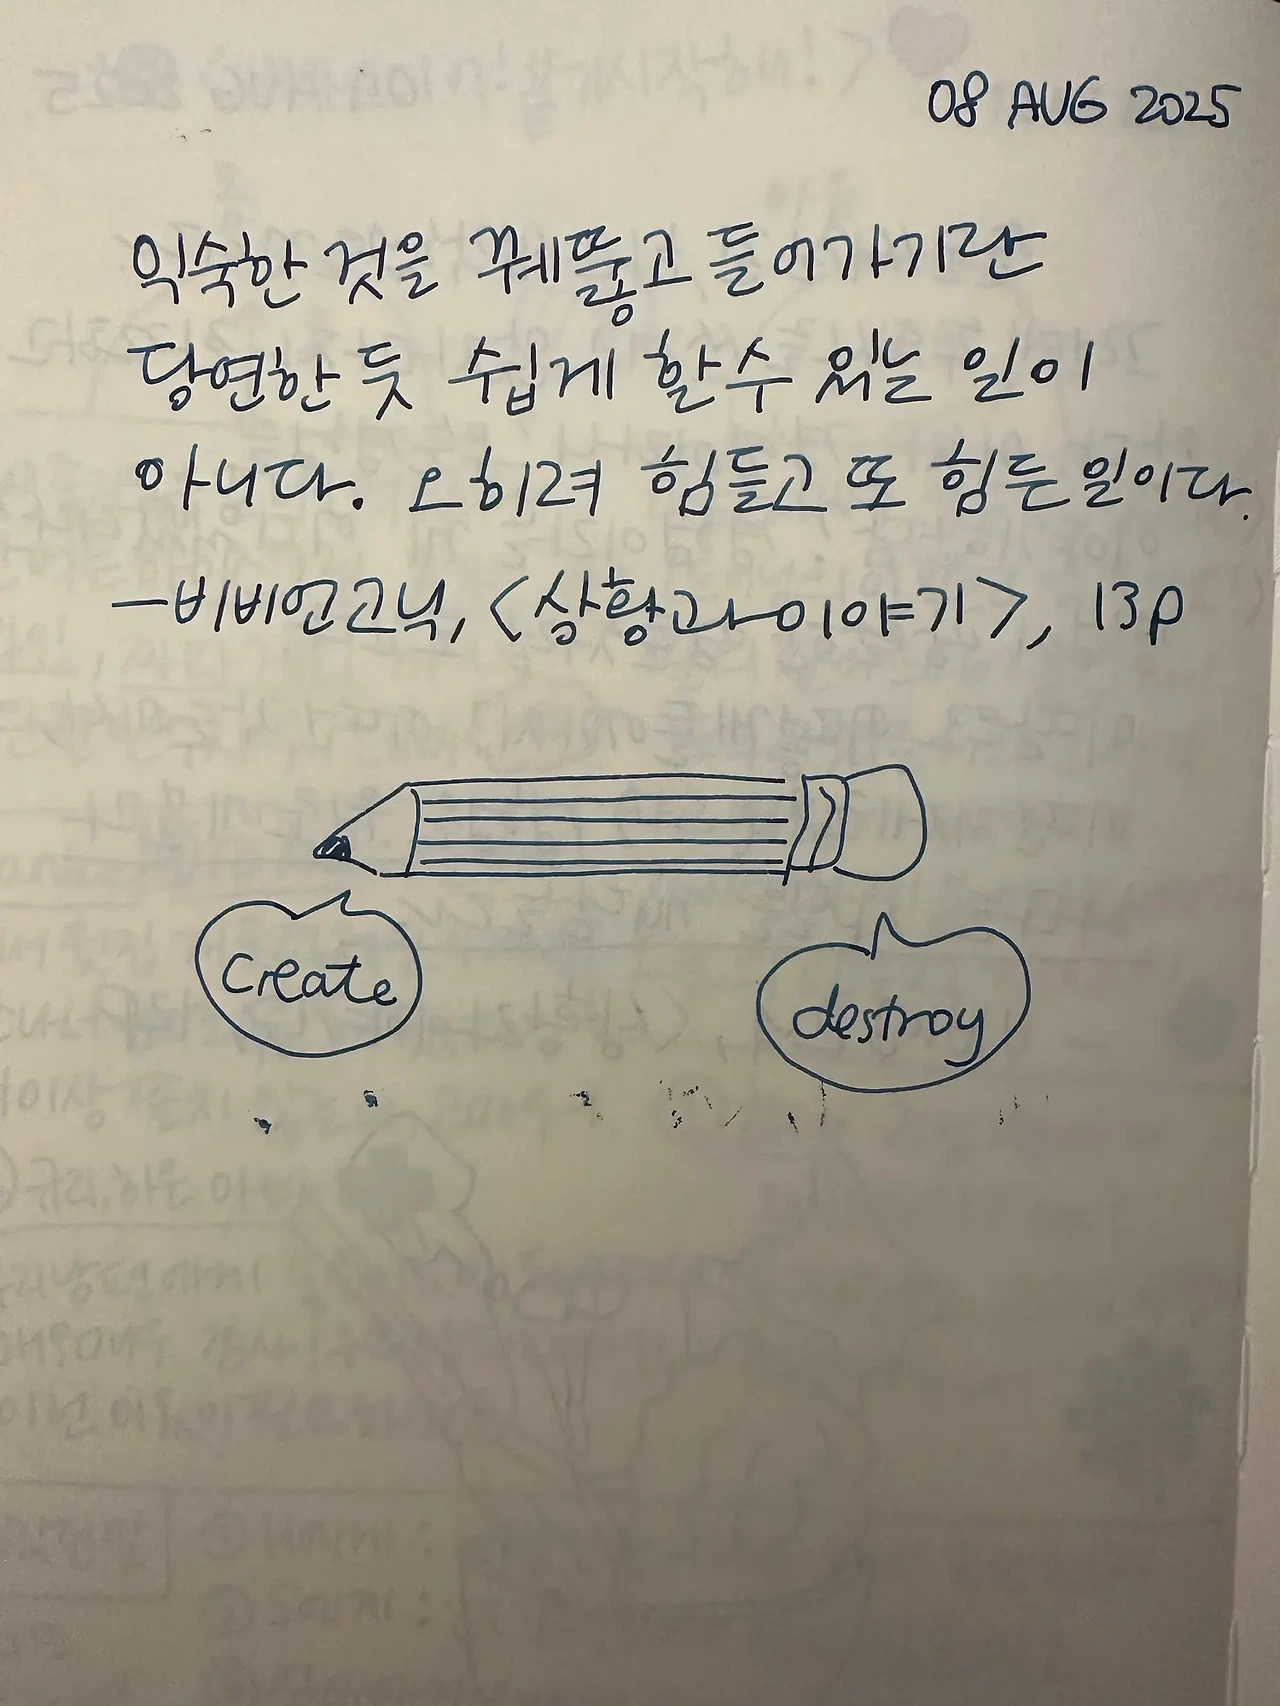 08 AUG 2025
익숙한 것을 꿰뚫고 들어가기란
당연한 듯 쉽게 할 수 있는 일이
아니다. 오히려 힘들고 또 힘든 일이다.
—비비언 고닉, <상황과 이야기>, 13p
create
destroy